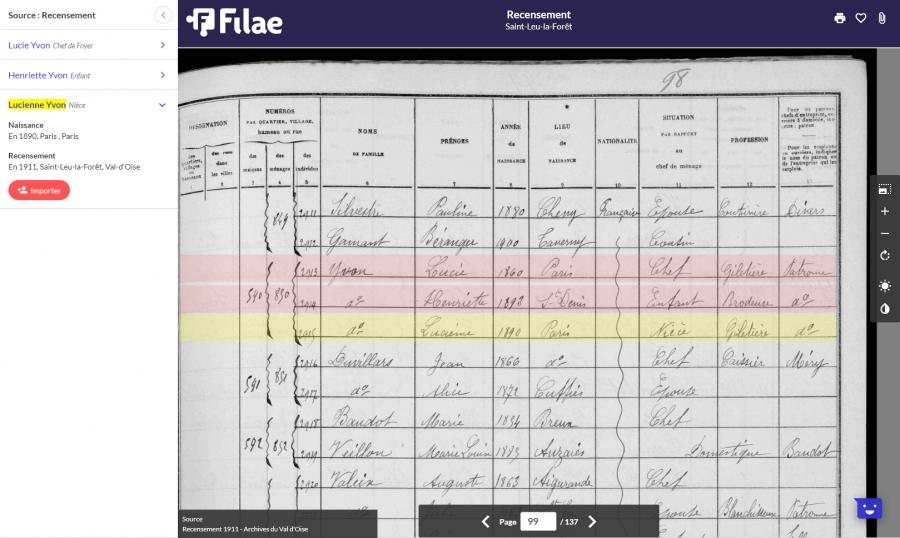 Source : Recensement
Lucie Yvon Chef de Foyer
Henriette Yvon Enfant
Lucienne Yvon Nièce
Naissance
En 1890, Paris , Paris
Recensement
En 1911, Saint-Leu-la-Forêt, Val-d'Oise
Importer
Filae
Recensement
Saint-Leu-la-Forêt
98
DESIGNATION
NUMÉROS
PAR QUARTIER, VILLAGE,
hameau ou rue
NOMS
DE FAMILLE
PRÉNOMS
ANNÉE
de
NAISSANCE
LIEU
de
NAISSANCE
NATIONALITÉ
SITUATION
PAR RAPPORT
au
chef de ménage
PROFESSION
des rues
dans
les villes
des
maisons
des
ménages
des
individus
6 7 8 9 10 11 12
849 2911 Silvestre Pauline 1880 Cheny Française Epouse Couturière Divers
2912 Gamant Béranger 1900 Taverny Cousin
2913 Yvon Lucie 1860 Paris Chef Giletière Patronne
540 850 2914 do Henriette 1892 St Denis Enfant Brodeuse do
2915 do Lucienne 1890 Paris Nièce Giletière do
2916 Duvillars Jean 1866 do Chef Caissier Méry
591 851 2917 do Alice 1872 Cuffies Epouse
2918 Baudot Marie 1834 Chef
592 852 2919 Veillon Marie Louise Auzais Domestique Baudot
2920 Valeix Auguste 1863 Aigurande Chef
Epouse Blanchisseuse Patronne
Source
Recensement 1911 - Archives du Val d'Oise
Page 99 / 137